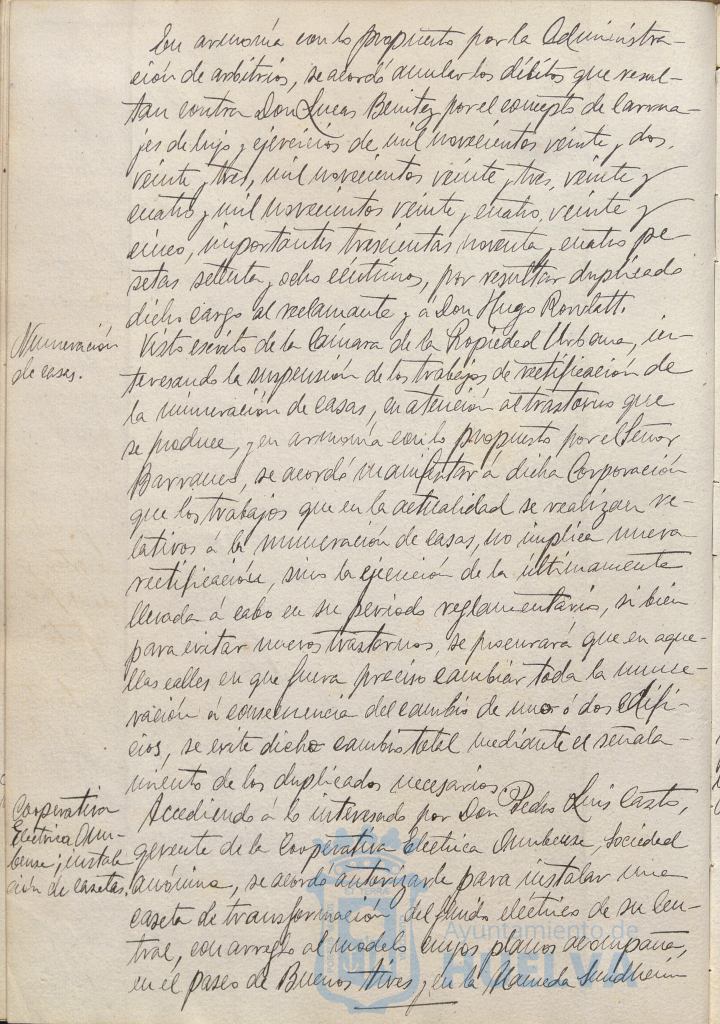 En armonía con lo propuesto por la Administra-
ción de arbitrios, se acordó anular los débitos que resul-
tan contra Don Lucas Benitez por el concepto de Carrua-
jes de lujo y ejercicios de mil novecientos veinte y dos,
veinte y tres, mil novecientos veinte y tres, veinte y
cuatro y mil novecientos veinte y cuatro, veinte y
cinco, importantes trescientas noventa y cuatro pe-
setas setenta y ocho céntimos, por resultar duplicado
dicho cargo al reclamante y á Don Hugo
Numeración
de casas.
Visto escrito de la Cámara de la Propiedad Urbana, in-
teresando la suspensión de los trabajos de rectificación de
la numeración de casas, en atención al trastorno que
se produce, y en armonía con lo propuesto por el Señor
Barranco, se acordó manifestar á dicha Corporación
que los trabajos que en la actualidad se realizan re-
lativos á la numeración de casas, no implica nueva
rectificación, sino la ejecución de la últimamente
llevada á cabo en su periodo reglamentario, si bien
para evitar nuevos trastornos, se procurará que en aque-
llas calles en que fuera preciso cambiar toda la nume-
ración á consecuencia del cambio de uno ó dos edifi-
cios, se evite dicho cambio total mediante el señala-
miento de los duplicados necesarios.
Cooperativa
Electrica Onu-
bense; instala
ción de casetas.
Accediendo á lo interesado por Don Pedro Luis Casto,
gerente de la Cooperativa Electrica Onubense, Sociedad
anónima, se acordó autorizarle para instalar una
caseta de transformación del fluido eléctrico de su Cen-
tral, con arreglo al modelo cuyos planos acompaña,
en el paseo de Buenos Aires y en la Alameda Sundheim
Ayuntamiento de
HUELVA